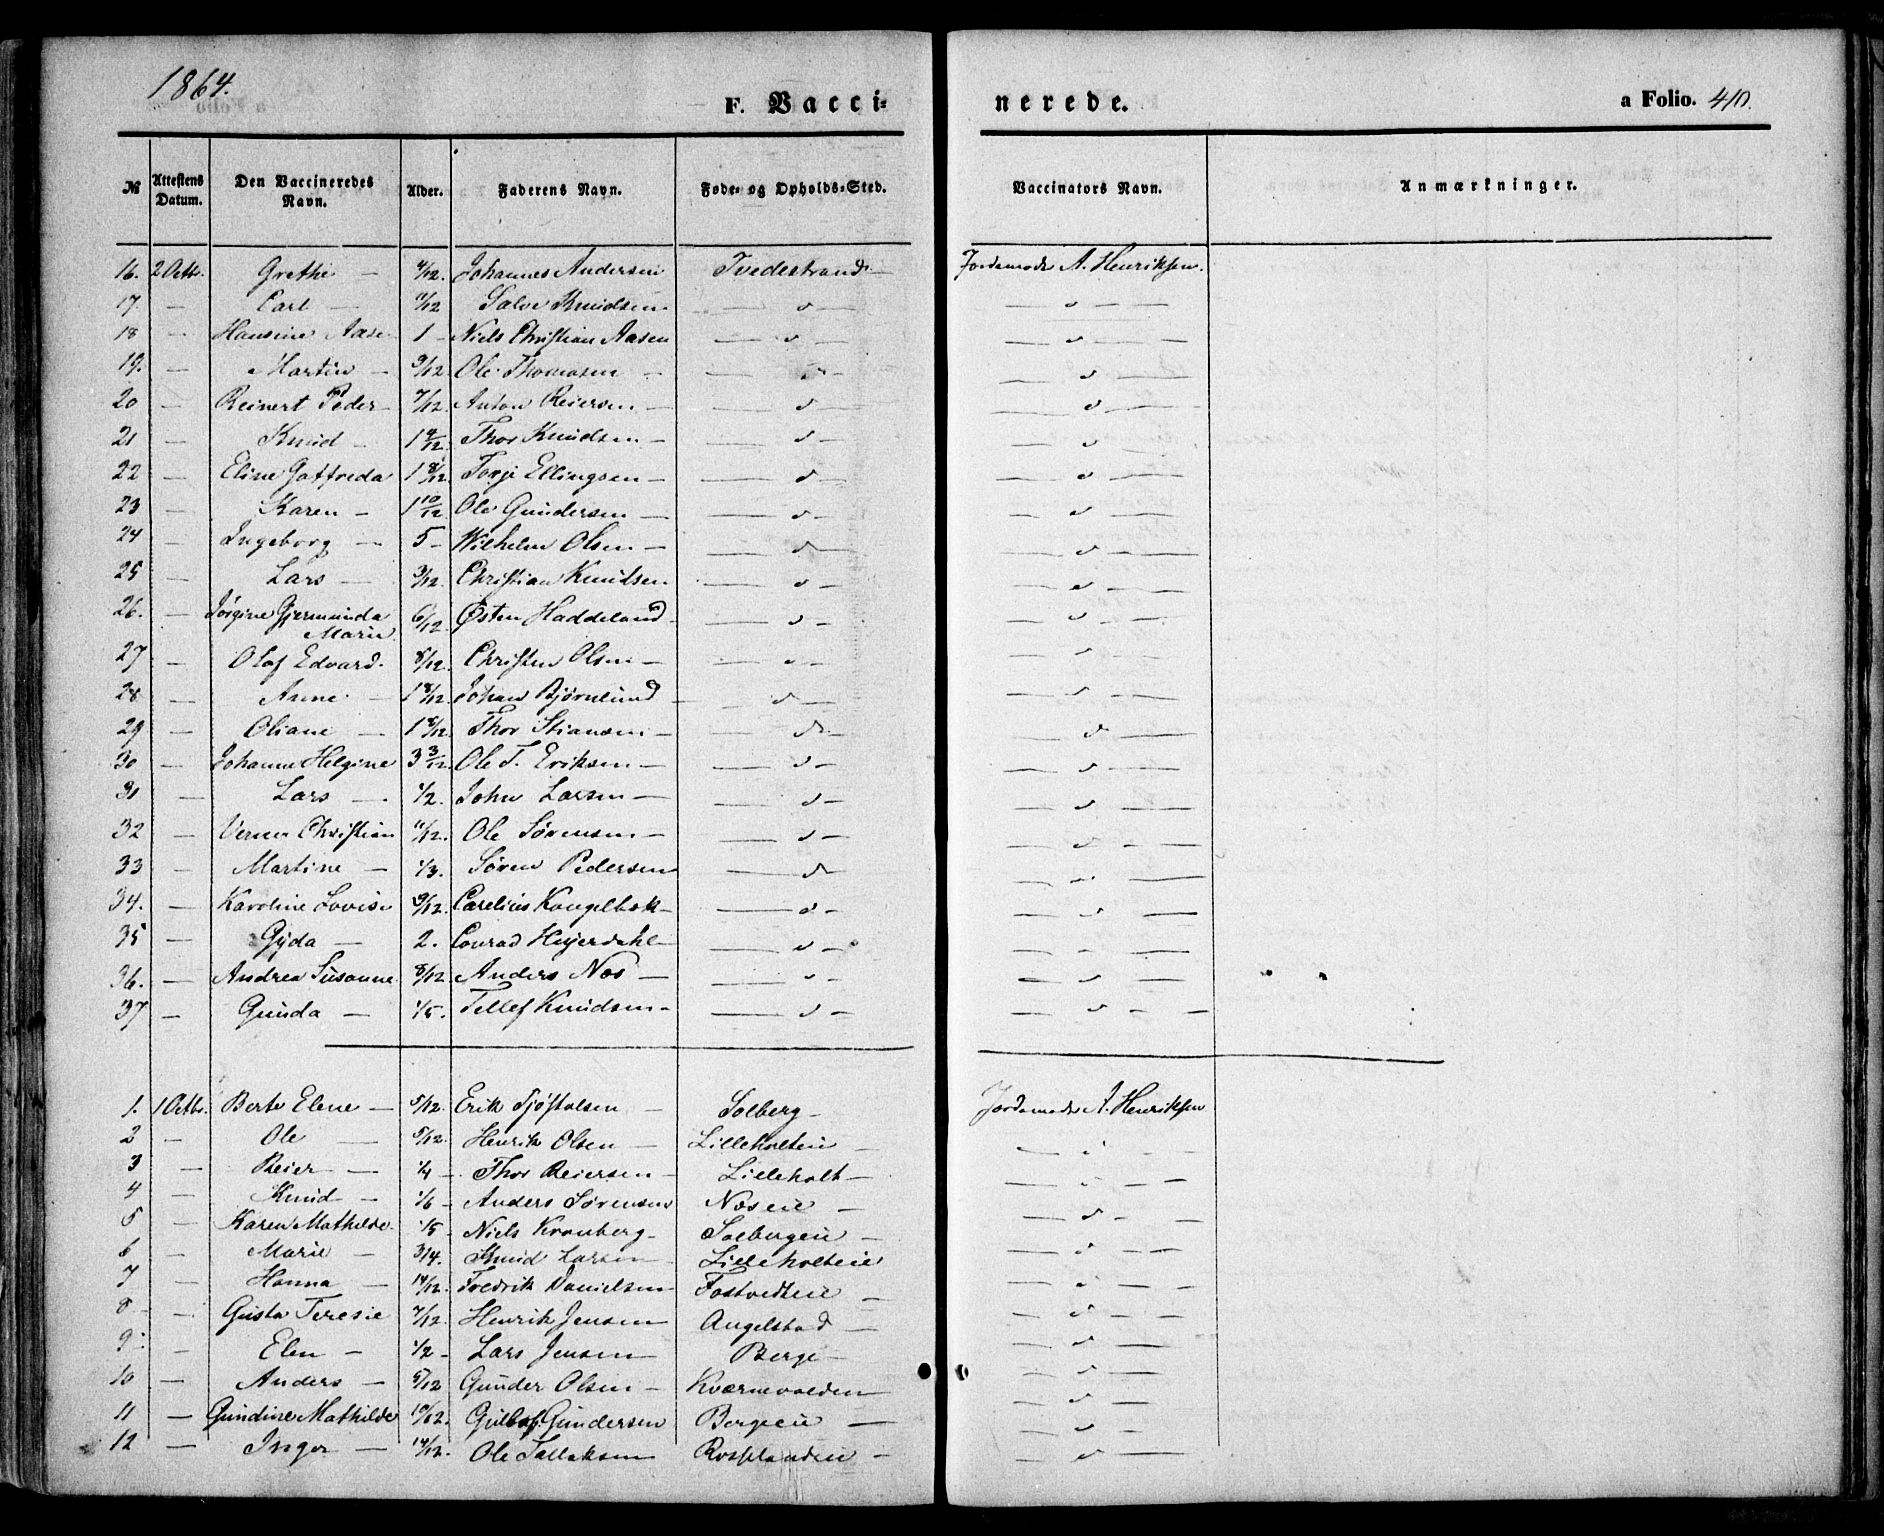 1864.
F. Vacci=
nerede.
a Folio. 410.
№ Attestens Datum. Den Vaccineredes Navn. Alder. Faderens Navn. Føde- og Opholds-Sted. Vaccinators Navn. Anmærkninger.
16. 2 Octb. Grethe — 4/12. Johannes Andersen Tvedestrand — Jordemodr A. Henriksen.
17. — Carl — 11/12 Salve Knudsen — " — — " — —
18 — Hansine Aase 1 — Niels Christian Aasen — " — — " — —
19. — Martin — 9/12. Ole Thomasen — — " — — " — —
20 — Reinert Peder — 7/12. Anton Reiersen — — " — — " — —
21 — Knud — 1 4/12. Thor Knudsen — — " — — " — —
22 — Eline Gottfreda 1 8/12. Terje Ellingsen — — " — — " — —
23 — Karen — 1 10/12. Ole Gundersen — — " — — " — —
24 — Ingeborg — 5 — Wilhelm Olsen — — " — — " — —
25 — Lars — 3/12. Christian Knudsen — " — — " — —
26. — Jørgine Gjermunda Marie 6/12. Østen Haddeland — " — — " — —
27 — Olaf Edvard. 8/12. Christen Olsen — — " — — " — —
28 — Anne — 1 8/12. Johan Bjørnlund — — " — — " — —
29 — Oliane — 1 8/12. Thor Stiansen — — " — — " — —
30 — Johanne Helgine 3 3/12. Ole T. Eriksen — — " — — " — —
31 — Lars — 1/2. John Larsen — — " — — " — —
32 — Verner Christian 11/12. Ole Sørensen — — " — — " — —
33 — Martine — 1/3. Søren Pedersen — " — — " — —
34. — Karoline Lovise 9/12. Carelius Kongelbek — — " — — " — —
35 — Gyda — 2. Conrad Heyerdahl — — " — — " — —
36. — Andrea Susanne. 8/12. Anders Næs — — " — — " — —
37 — Gunda — 1/5. Tellef Knudsen — — " — — " — —
1. 1 Octbr. Berte Elene — 5/12. Erik Tjøstolsen — Solberg — Jordemodr A. Henriksen
2 — Ole — 5/12. Henrik Olsen — Lilleholteie — — " — —
3 — Reier — 1/4 — Thor Reiersen — Lilleholt — — " — —
4 — Knud — 1/6 — Anders Sørensen Næseie — — " — —
5 — Karen Mathilde. 1/5 — Niels Kronberg — Solbergeie — — " — —
6 — Marie — 3/4. Knud Larsen Lilleholteie — " — —
7 — Hanna — 14/12. Fredrik Danielsen Fostvedteie — — " — —
8 — Gusta Teresie 7/12 Henrik Jensen Angelstad — — " — —
9. — Elen — 1/2 — Lars Jensen Berge — — " — —
10 — Anders — 5/12 Gunder Olsen — Kværnevolden — " — —
11 — Gundine Mathilde 10/12. Gullof Gundersen Bergeeie — — " — —
12 — Inger — 14/12. Ole Tallaksen Rossklandeie — — " — —